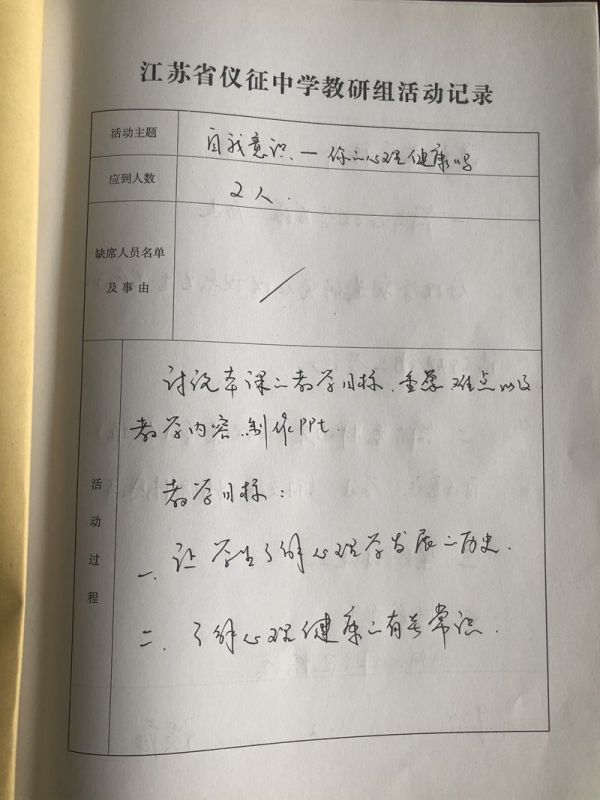 江苏省仪征中学教研组活动记录
活动主题
自我意识、一你的心理健康吗
应到人数
2人.
缺席人员名单
及事由
/
活动过程
讨论本课之教学目标、重、难点以及
教学内容、制作PPt.
教学目标：
一、让学生了解心理学发展之历史.
二、了解心理健康之有关常识.